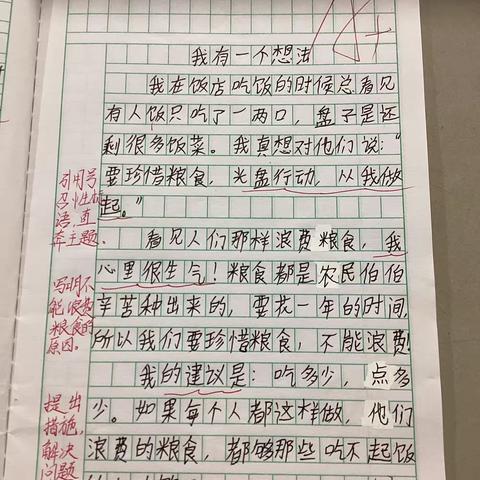 A+
我有一个想法
我在饭店吃饭的时候总看见
有人饭只吃了一两口，盘子里还
剩很多饭菜。我真想对他们说：“
要珍惜粮食，光盘行动，从我做
起。”
引用号
召性
语，直
奔主题．
看见人们那样浪费粮食，我
心里很生气！粮食都是农民伯伯
辛苦种出来的，要花一年的时间，
所以我们要珍惜粮食，不能浪费！
写明不
能浪费
粮食的
原因。
我的建议是：吃多少，点多
少。如果每个人都这样做，他们
浪费的粮食，都够那些吃不起饭
提出
措施，
解决
问题